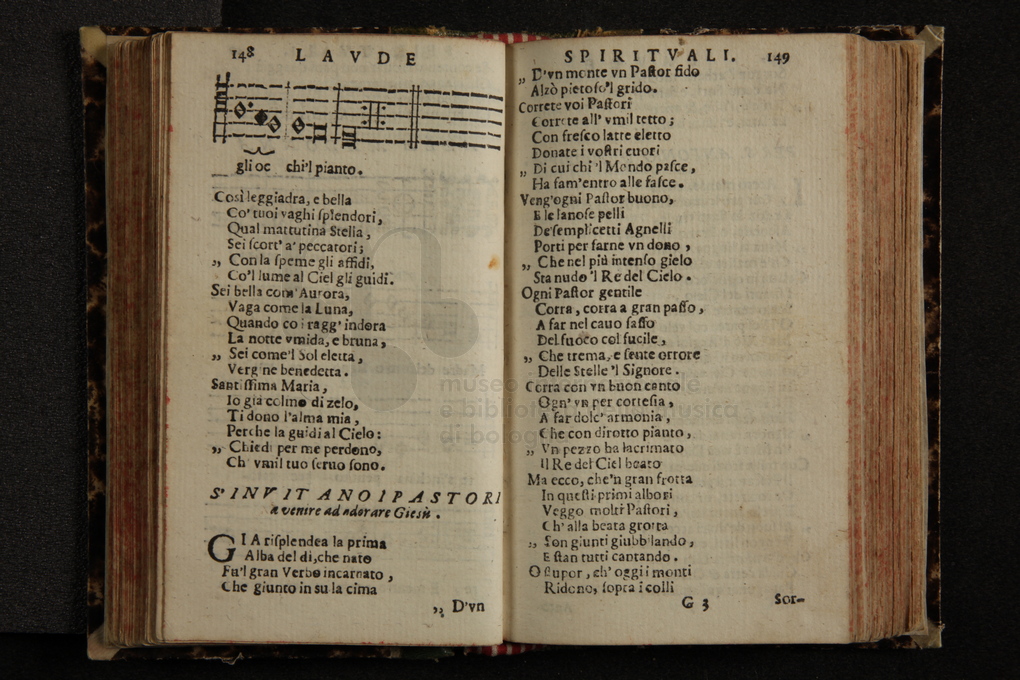 148 LAVDE
gli oc chi'l pianto.
Così leggiadra, e bella
Co' tuoi vaghi ſplendori,
Qual mattutina Stella,
Sei ſcort' a' peccatori;
„ Con la ſpeme gli affidi,
Co'l lume al Ciel gli guidi.
Sei bella com' Aurora,
Vaga come la Luna,
Quando co i ragg' indora
La notte vmida, e bruna,
„ Sei come'l Sol eletta,
Vergine benedetta.
Santiſſima Maria,
Io già colmo di zelo,
Ti dono l'alma mia,
Perche la guidi al Cielo:
„ Chiedi per me perdono,
Ch' vmil tuo ſeruo ſono.
S' INVITANO I PASTORI
a venire ad adorare Giesù.
GIA riſplendea la prima
Alba del dì, che nato
Fu'l gran Verbo incarnato,
Che giunto in su la cima
„ D'vn
SPIRITVALI. 149
„ D'vn monte vn Paſtor fido
Alzò pietoſo'l grido.
Correte voi Paſtori
Correte all' vmil tetto;
Con freſco latte eletto
Donate i voſtri cuori
„ Di cui chi 'l Mondo paſce,
Ha fam'entro alle faſce.
Veng'ogni Paſtor buono,
E le lanoſe pelli
De'ſemplicetti Agnelli
Porti per farne vn dono,
„ Che nel più intenſo gielo
Sta nudo 'l Re del Cielo.
Ogni Paſtor gentile
Corra, corra a gran paſſo,
A far nel cauo ſaſſo
Del fuoco col fucile,
„ Che trema, e ſente orrore
Delle Stelle 'l Signore.
Corra con vn buon canto
Ogn' vn per corteſia,
A far dolc' armonia,
Che con dirotto pianto,
„ Vn pezzo ha lacrimato
Il Re del Ciel beato
Ma ecco, che'n gran frotta
In queſti primi albori
Veggo molti Paſtori,
Ch' alla beata grotta
„ Son giunti giubbilando,
E ſtan tutti cantando.
O ſtupor, ch' oggi i monti
Ridono, ſopra i colli
G 3 Sor-
museo
e biblioteca della musica
di bologna